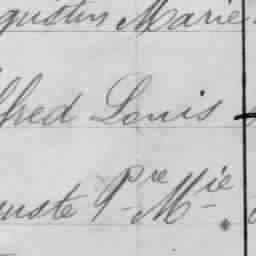 gustin Marie
lfred Louis
uste Pre Mie